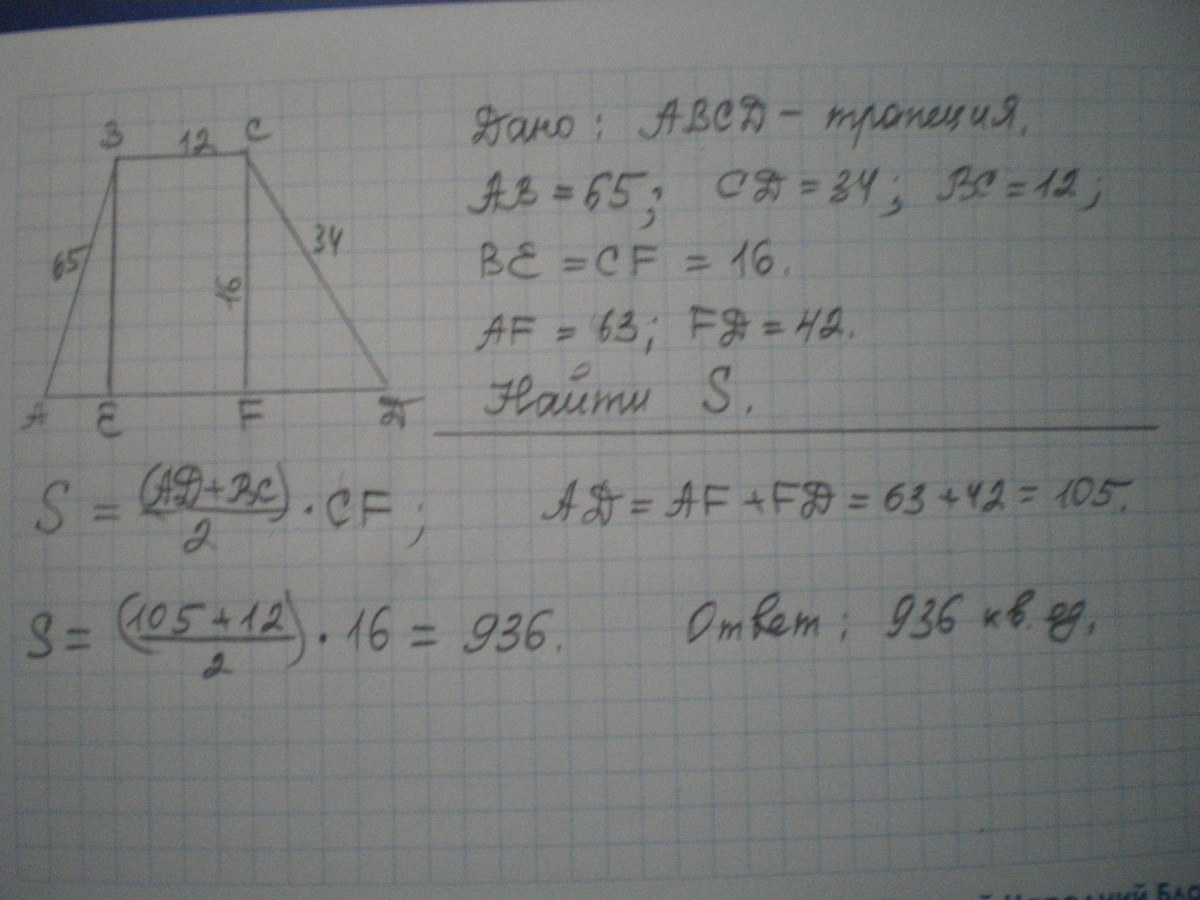 B 12 C
65
34
16
A E F D
Дано: ABCD – трапеция.
AB = 65; CD = 34; BC = 12;
BE = CF = 16.
AF = 63; FD = 42.
Найти S.
S = (AD+BC)/2 · CF; AD = AF + FD = 63 + 42 = 105.
S = (105+12)/2 · 16 = 936. Ответ: 936 кв. ед.